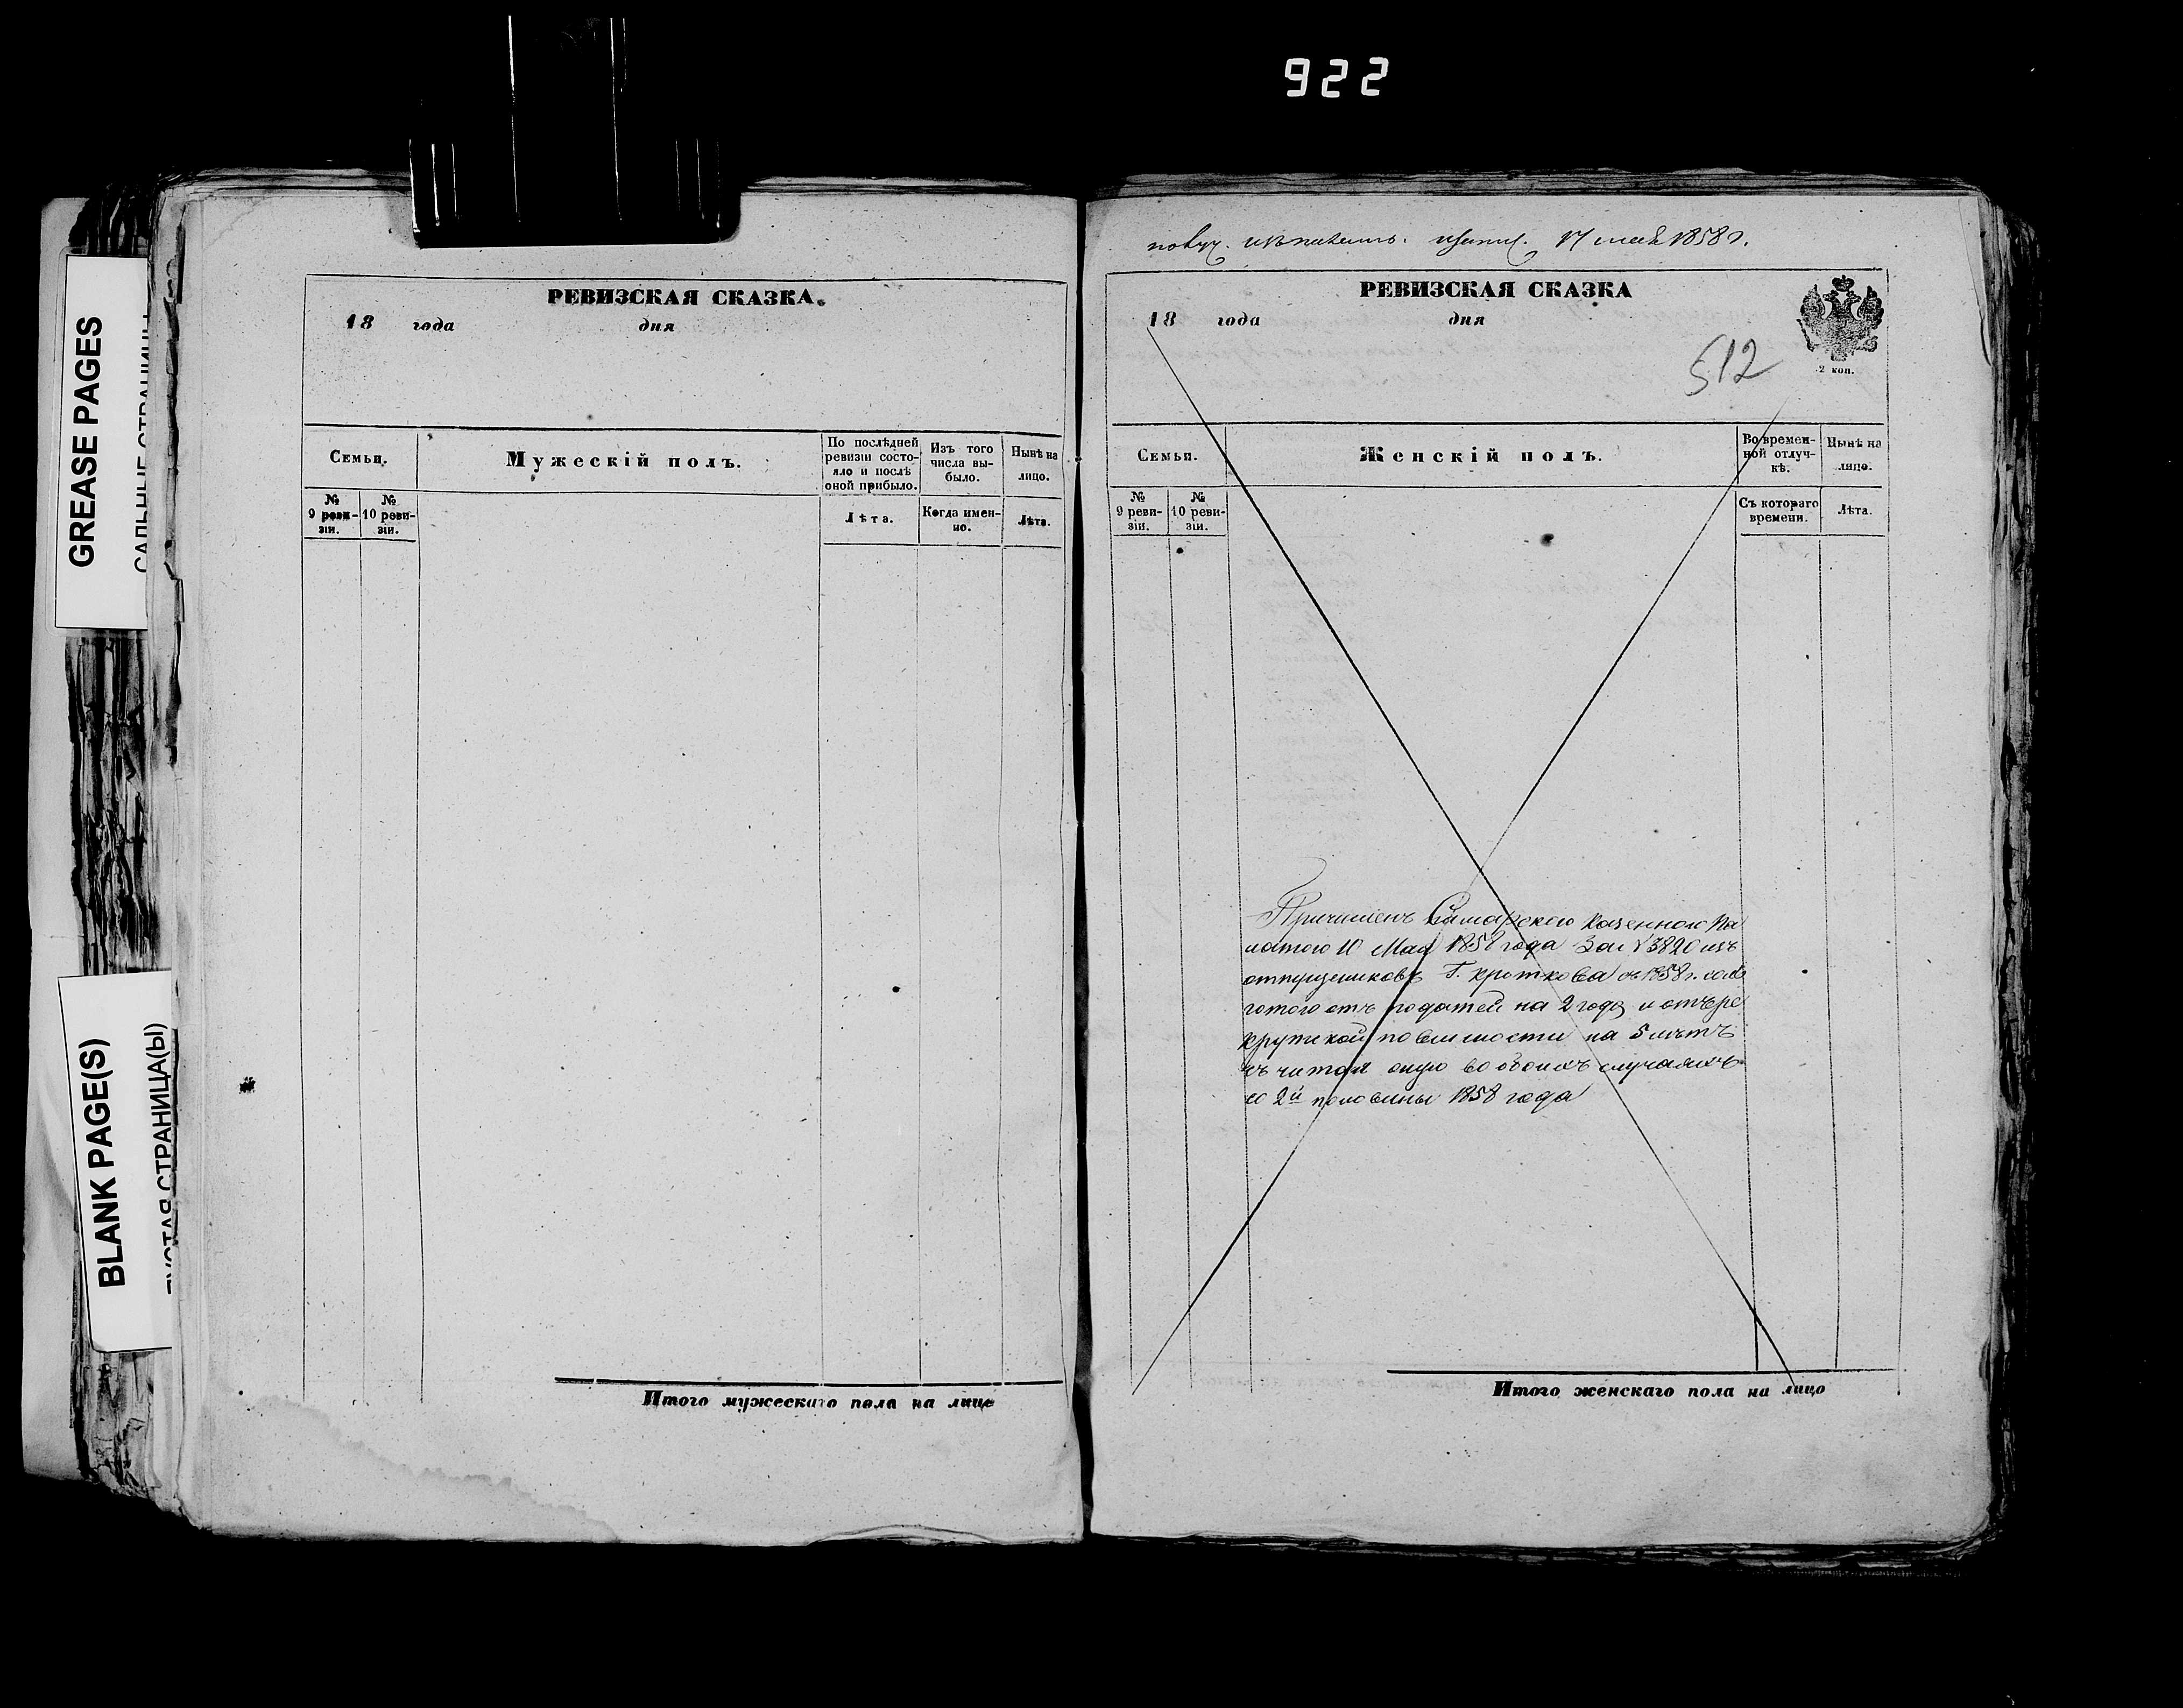 922
GREASE PAGES
BLANK PAGE(S)
СТРАНИЦА(Ы)
РЕВИЗСКАЯ СКАЗКА.
18 года дня
Семьи.
Мужескій полъ.
По послѣдней ревизіи состояло и послѣ оной прибыло.
Изъ того числа выбыло.
Нынѣ на лицо.
№ 9 ревизіи.
№ 10 ревизіи.
Лѣта.
Когда именно.
Лѣта.
Итого мужескаго пола на лицо
17 мая 1858 г.
РЕВИЗСКАЯ СКАЗКА
18 года дня
2 коп.
512
Семьи.
Женскій полъ.
Во временной отлучкѣ.
Нынѣ на лицо.
№ 9 ревизіи.
№ 10 ревизіи.
Съ котораго времени.
Лѣта.
Причисленъ Самарскою Казенною Па
латою 10 Мая 1858 года За № 3820 изъ
отпущениковъ Г. Кроткова съ 1858 г. со ль
готою отъ податей на 2 года и отъ ре
крутской повинности на 5 лѣтъ
считая оную во обоихъ случаяхъ
со 2й половины 1858 года
Итого женскаго пола на лицо